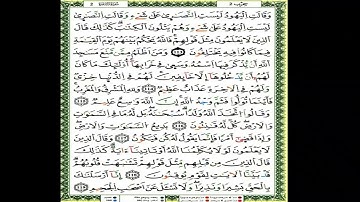 وَقَالَتِ ٱلْيَهُودُ لَيْسَتِ ٱلنَّصَٰرَىٰ عَلَىٰ شَىْءٍ وَقَالَتِ ٱلنَّصَٰرَىٰ
لَيْسَتِ ٱلْيَهُودُ عَلَىٰ شَىْءٍ وَهُمْ يَتْلُونَ ٱلْكِتَٰبَ كَذَٰلِكَ قَالَ
ٱلَّذِينَ لَا يَعْلَمُونَ مِثْلَ قَوْلِهِمْ فَٱللَّهُ يَحْكُمُ بَيْنَهُمْ يَوْمَ ٱلْقِيَٰمَةِ
فِيمَا كَانُوا۟ فِيهِ يَخْتَلِفُونَ وَمَنْ أَظْلَمُ مِمَّن مَّنَعَ مَسَٰجِدَ
ٱللَّهِ أَن يُذْكَرَ فِيهَا ٱسْمُهُۥ وَسَعَىٰ فِى خَرَابِهَآ أُو۟لَٰٓئِكَ مَا كَانَ
لَهُمْ أَن يَدْخُلُوهَآ إِلَّا خَآئِفِينَ لَهُمْ فِى ٱلدُّنْيَا خِزْىٌ
وَلَهُمْ فِى ٱلْءَاخِرَةِ عَذَابٌ عَظِيمٌ وَلِلَّهِ ٱلْمَشْرِقُ وَٱلْمَغْرِبُ
فَأَيْنَمَا تُوَلُّوا۟ فَثَمَّ وَجْهُ ٱللَّهِ إِنَّ ٱللَّهَ وَٰسِعٌ عَلِيمٌ
وَقَالُوا۟ ٱتَّخَذَ ٱللَّهُ وَلَدًا سُبْحَٰنَهُۥ بَل لَّهُۥ مَا فِى ٱلسَّمَٰوَٰتِ
وَٱلْأَرْضِ كُلٌّ لَّهُۥ قَٰنِتُونَ بَدِيعُ ٱلسَّمَٰوَٰتِ وَٱلْأَرْضِ
وَإِذَا قَضَىٰٓ أَمْرًا فَإِنَّمَا يَقُولُ لَهُۥ كُن فَيَكُونُ وَقَالَ ٱلَّذِينَ
لَا يَعْلَمُونَ لَوْلَا يُكَلِّمُنَا ٱللَّهُ أَوْ تَأْتِينَآ ءَايَةٌ كَذَٰلِكَ
قَالَ ٱلَّذِينَ مِن قَبْلِهِم مِّثْلَ قَوْلِهِمْ تَشَٰبَهَتْ قُلُوبُهُمْ
قَدْ بَيَّنَّا ٱلْءَايَٰتِ لِقَوْمٍ يُوقِنُونَ إِنَّآ أَرْسَلْنَٰكَ
بِٱلْحَقِّ بَشِيرًا وَنَذِيرًا وَلَا تُسْـَٔلُ عَنْ أَصْحَٰبِ ٱلْجَحِيمِ